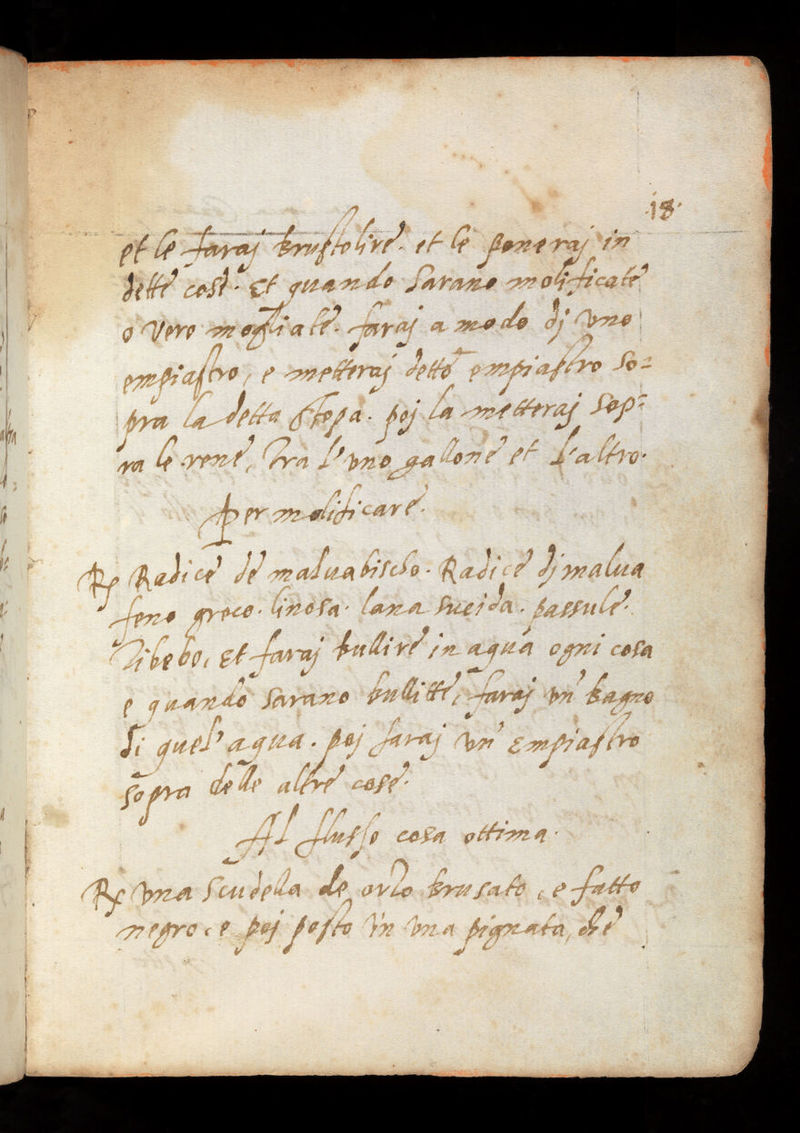 18
et le faraj brustolire. et le poneraj in
dette cose. Et quando sarano molificate
o vero mogliate. faraj a modo dj uno
empiastro, e metteraj detto empiastro so=
pra la detta stopa. poj la metteraj sop=
ra le rene, tra l'uno gallone et l'altro.
Per molificare.
Rx Radice de maluabischo. Radice dj malua
feno greco. linosa. lana sucida. passule.
Zibebo, Et faraj bullire in aqua ogni cosa
e quando sarano bullitte, faraj un bagno
di quel' aqua. poj faraj un' empiastro
sopra delle altre cose.
Al flusso cosa ottima.
Rx una scudella de orzo brusato, e fatto
negro, e poj posto in una pignata, che